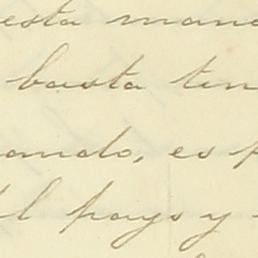 esta mane
basta ten
ando, es p
el pays y